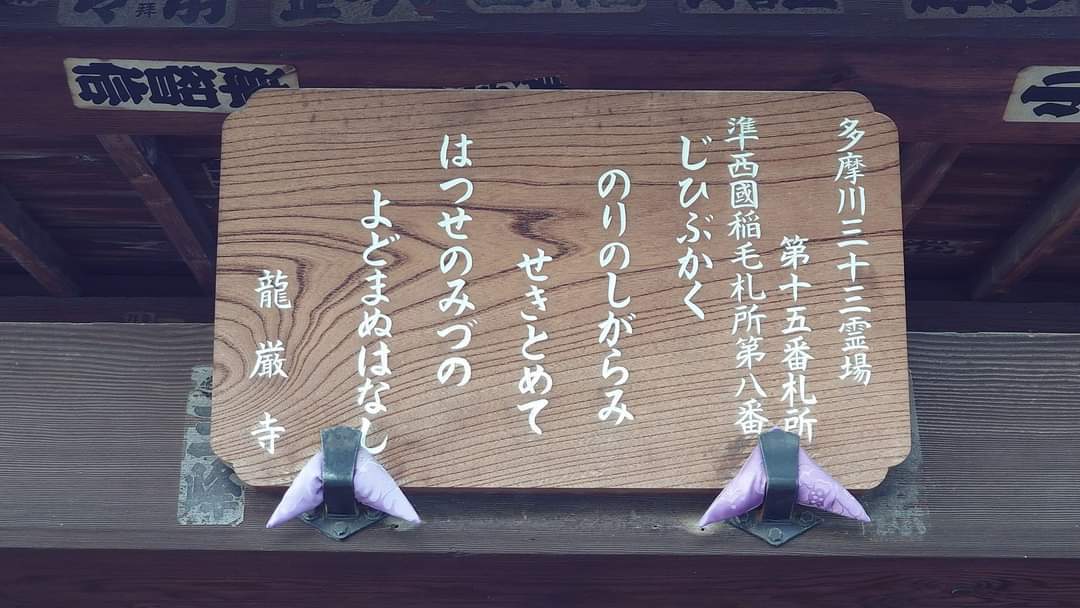 多摩川三十三霊場
第十五番札所
準西國稲毛札所第八番
じひぶかく
のりのしがらみ
せきとめて
はつせのみづの
よどまぬはなし
龍巌寺